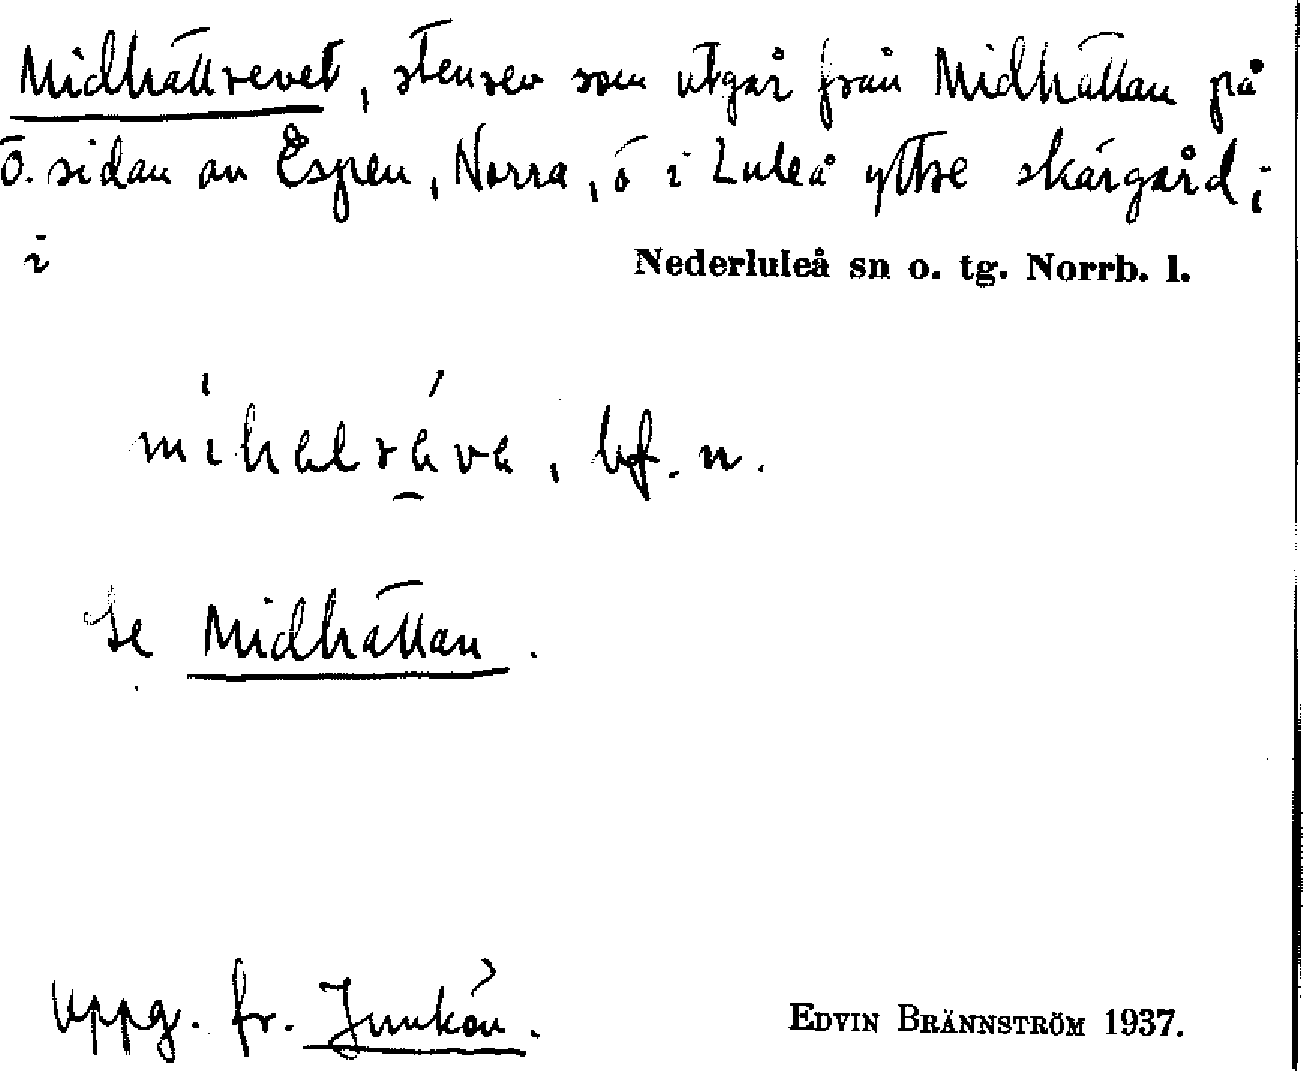 Midhällrevet, stenrev som utgår från Midhällan på
ö. sidan av Espen, Norra, ö i Luleå yttre skärgård;
i Nederluleå sn o. tg. Norrb. l.
bf. n.
Se Midhällan.
Uppg. fr. Junkön.
EDVIN BRÄNNSTRÖM 1937.